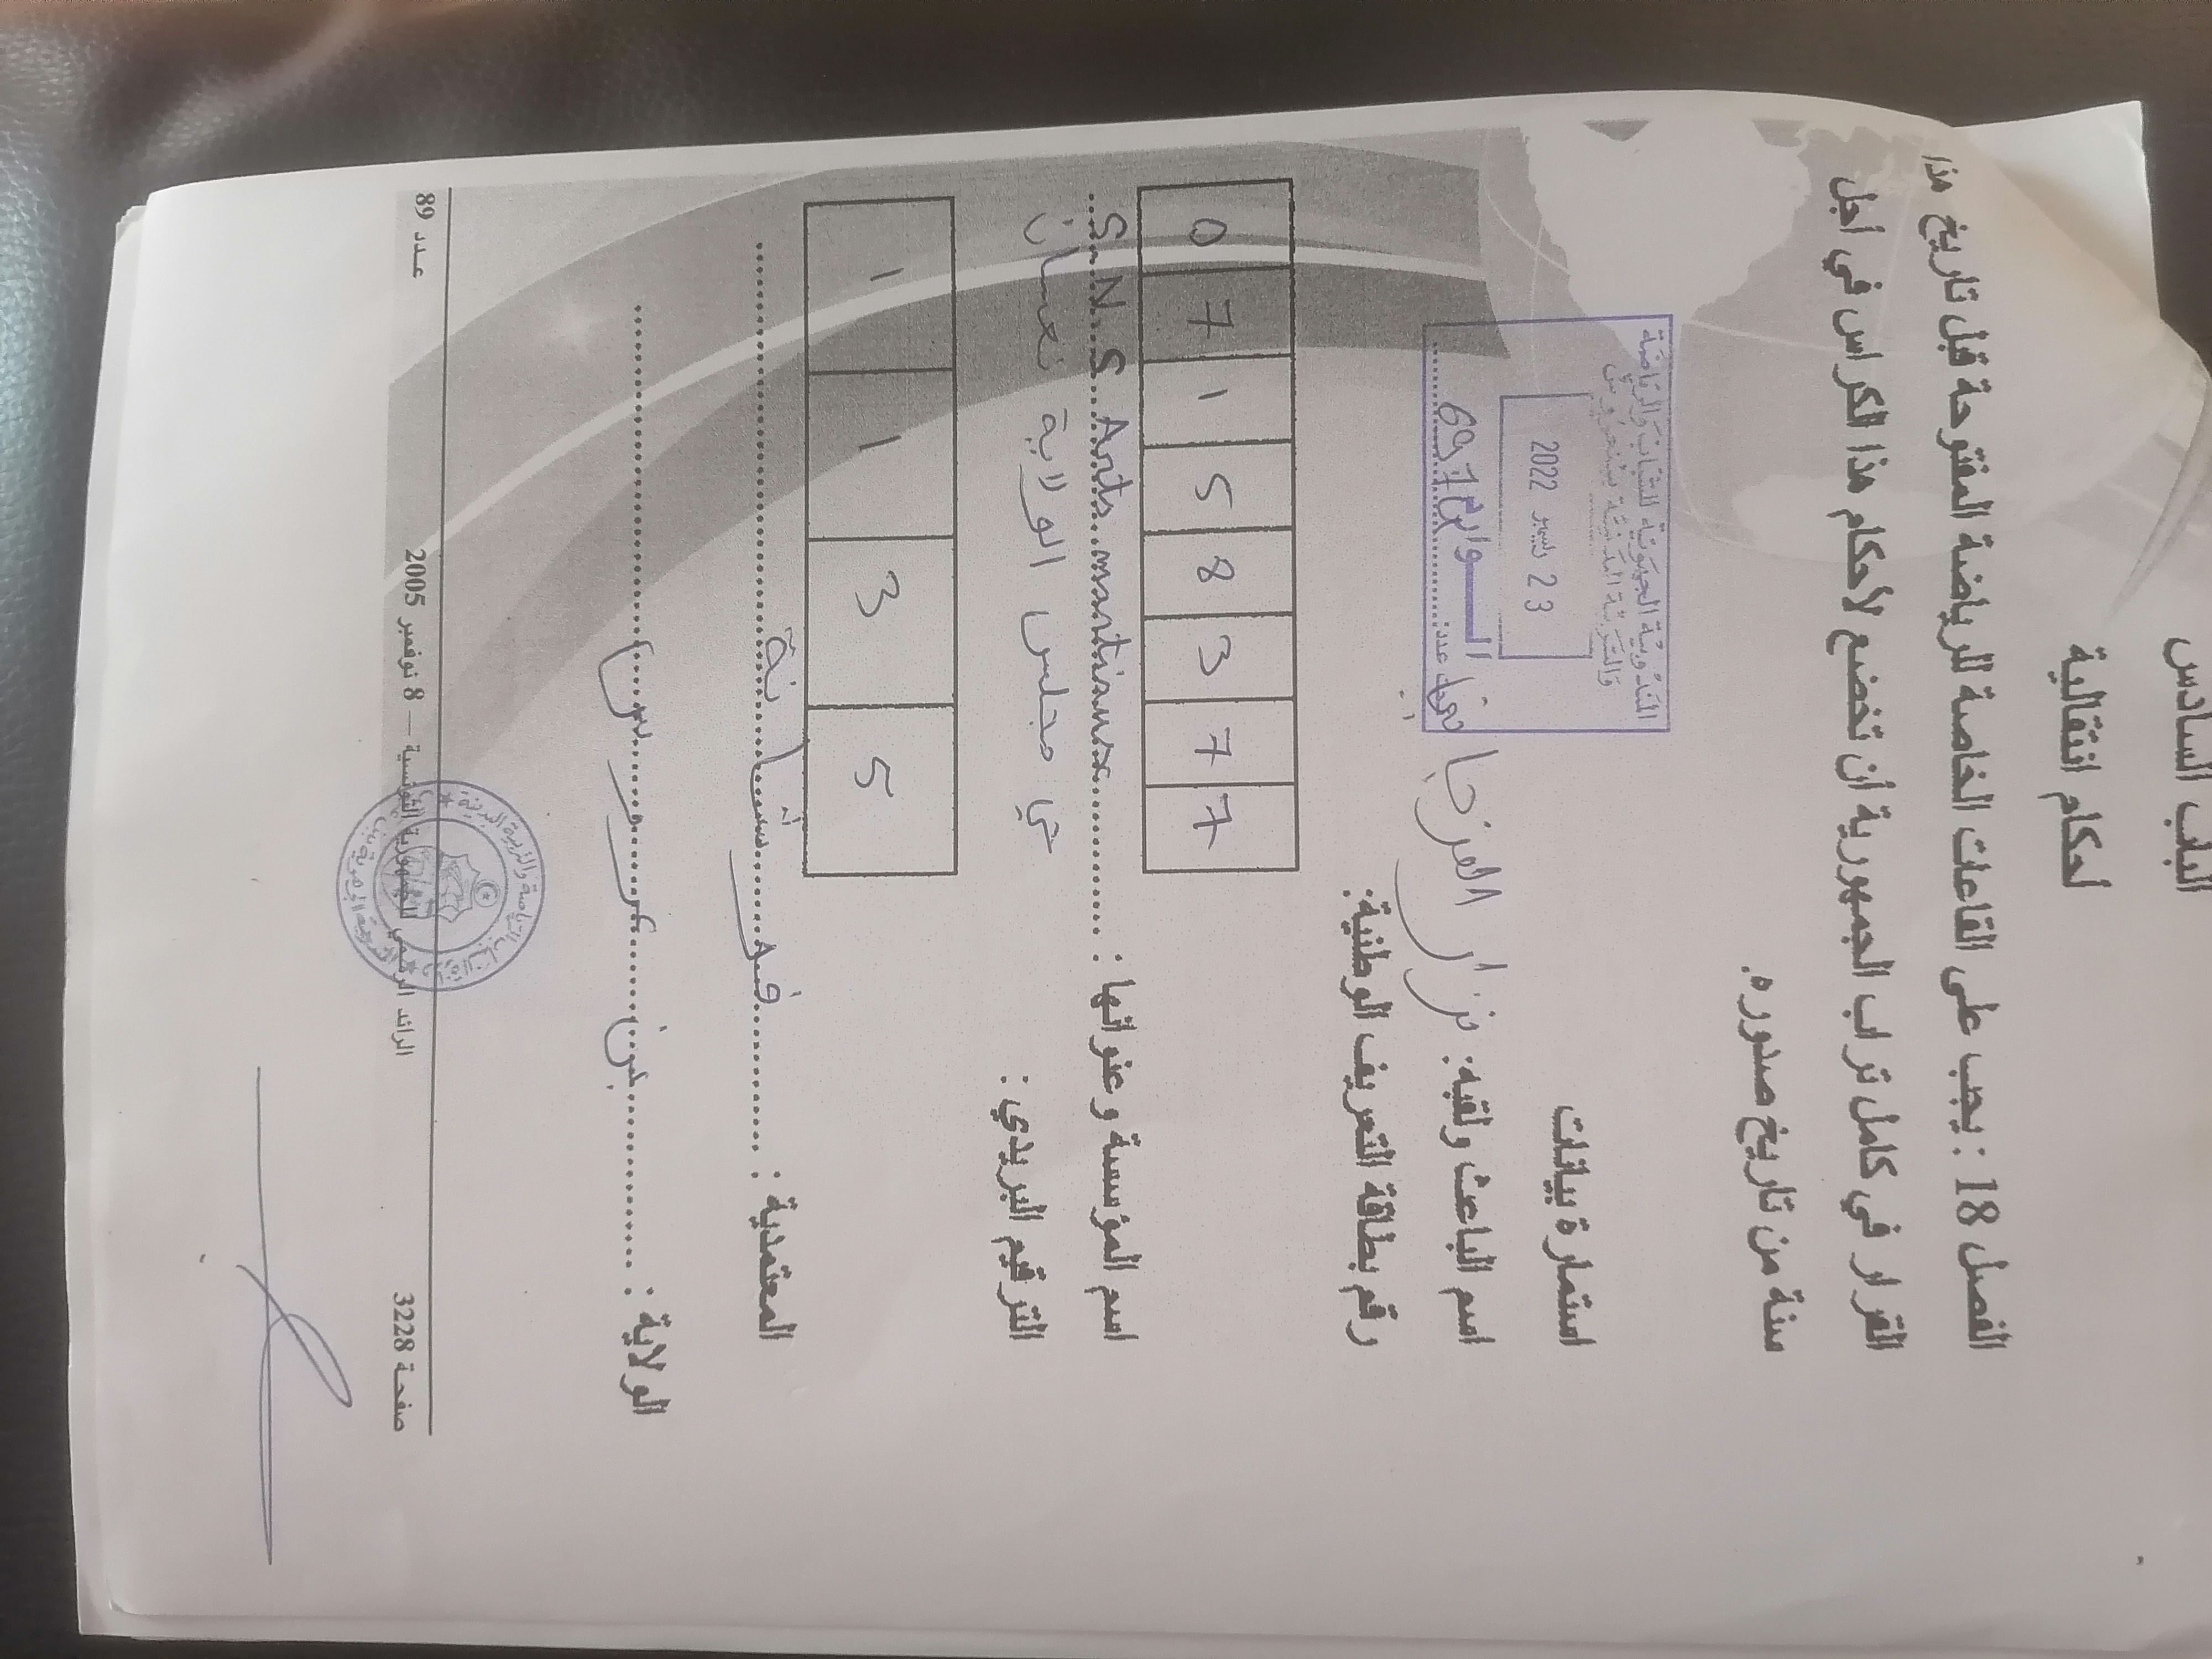 الباب السادس
أحكام انتقالية
الفصل 18 : يجب على القاعات الخاصة للرياضة المفتوحة قبل تاريخ هذا
القرار في كامل تراب الجمهورية أن تخضع لأحكام هذا الكراس في أجل
سنة من تاريخ صدوره.
المندوبية الجهوية للشباب والرياضة
والتربية البدنية ببن عروس
23 ديسمبر 2022
الـــوارد
عدد:
استمارة بيانات
اسم الباعث ولقبه: نزار الفرجاني
رقم بطاقة التعريف الوطنية:
0 7 1 5 8 3 7 7
اسم المؤسسة وعنوانها : S.N.S Arts martiaux
حي مجلس الولاية نعسان
الترقيم البريدي :
1 1 3 5
المعتمدية : فوشانة
الولاية : بن عروس
صفحة 3228 الرائد الرسمي للجمهورية التونسية — 8 نوفمبر 2005 عـدد 89